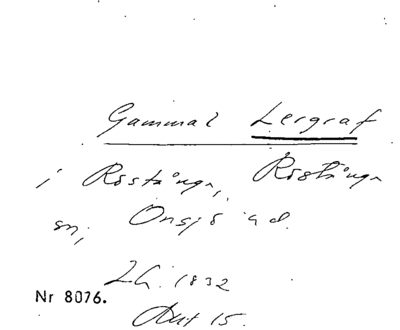 Gammal Lergraf
i Röstånga, Röstånga
sn, Onsjö hd.
LG. 1832
Nr 8076.
15.